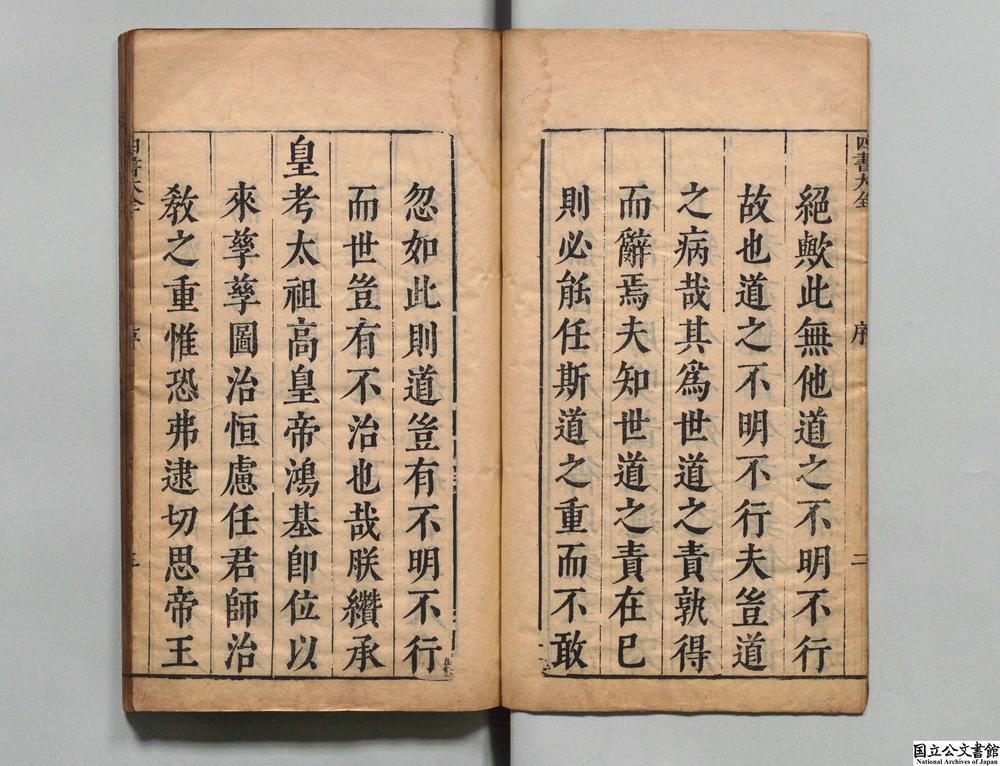 四書大全
序
二
絕歟此無他道之不明不行
故也道之不明不行夫豈道
之病哉其為世道之責孰得
而辭焉夫知世道之責在已
則必能任斯道之重而不敢
忽如此則道豈有不明不行
而世豈有不治也哉朕纘承
皇考太祖高皇帝鴻基即位以
來孳孳圖治恒慮任君師治
教之重惟恐弗逮切思帝王
四書大全
序
国立公文書館
National Archives of Japan